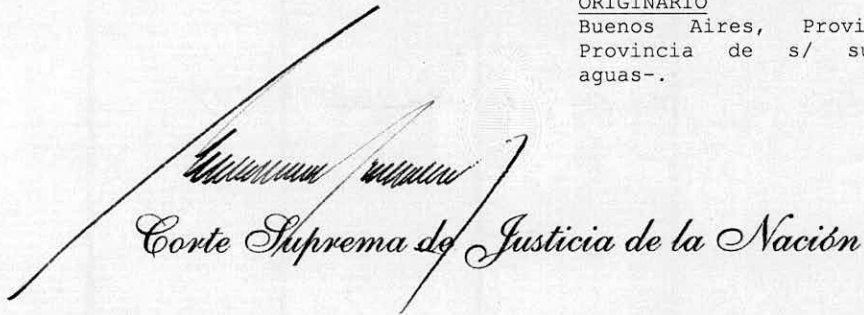 ORIGINARIO
Buenos Aires, Provi
Provincia de s/ su
aguas-.
Corte Suprema de Justicia de la Nación